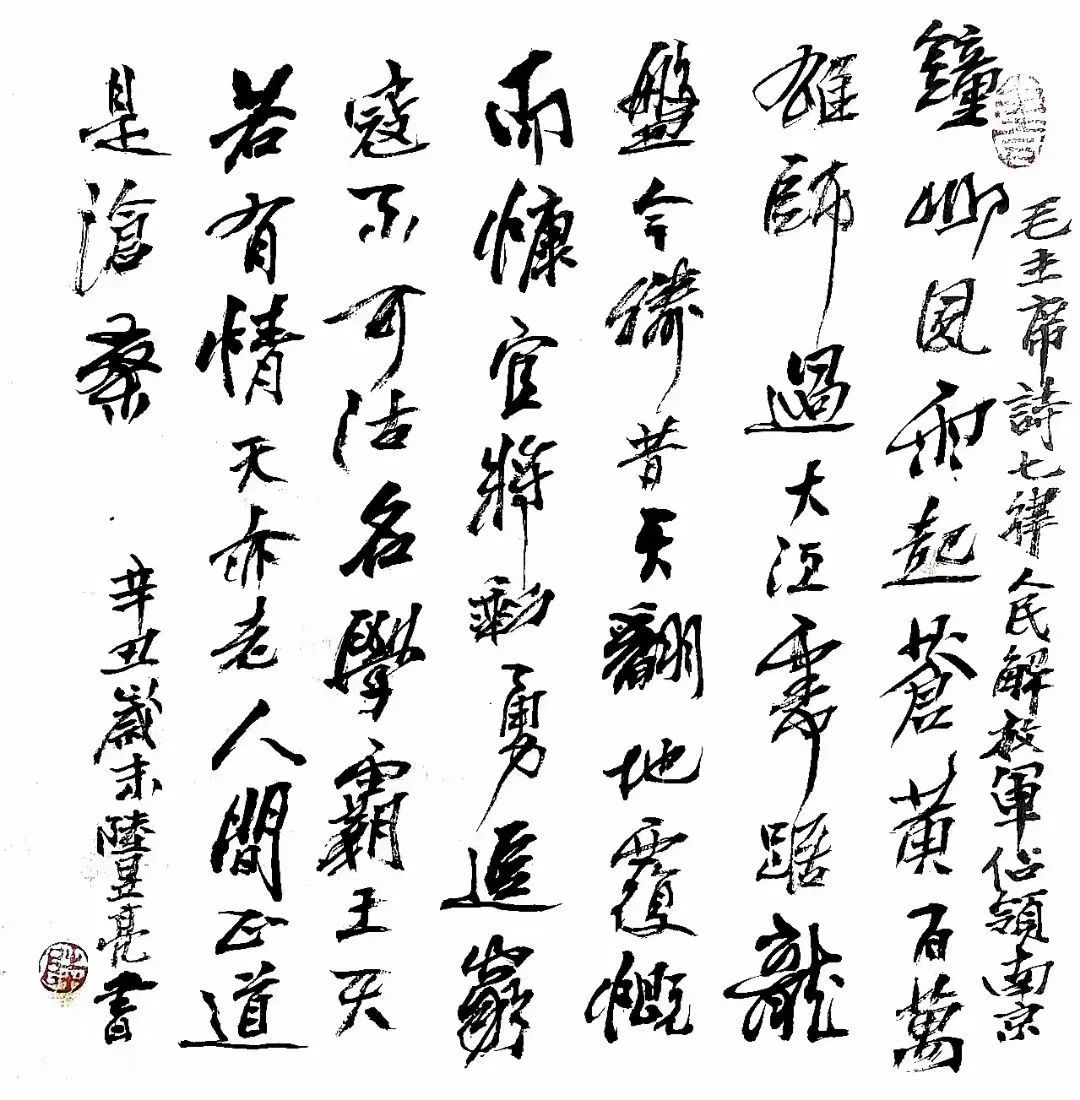 毛主席詩七律人民解放軍佔領南京
鐘山風雨起蒼黃百萬
雄師過大江虎踞龍
盤今勝昔天翻地覆慨
而慷宜將剩勇追窮
寇不可沽名學霸王天
若有情天亦老人間正道
是滄桑
辛丑歲末陸昱亮書